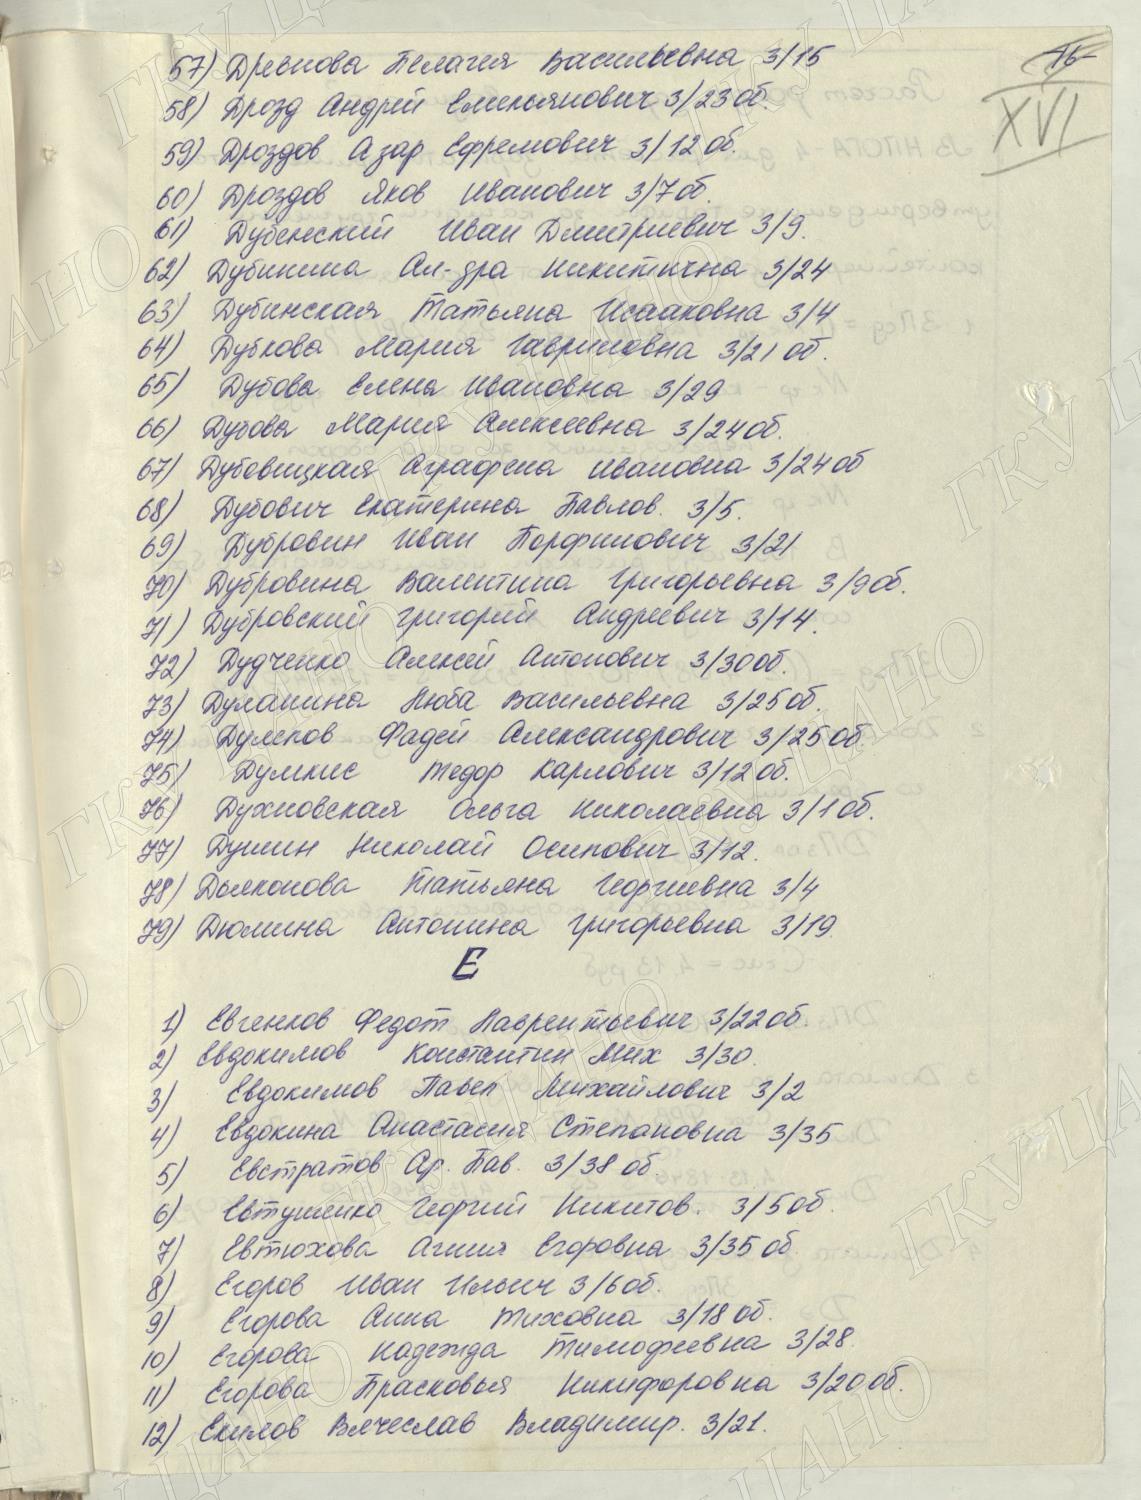 XVI
57) Дреснова Пелагея Васильевна 3/15
58) Дрозд Андрей Емельянович 3/23об.
59) Дроздов Азар Ефремович 3/12об.
60) Дроздов Яков Иванович 3/7об.
61) Дубенский Иван Дмитриевич 3/9.
62) Дубинина Ал-дра Никитична 3/24
63) Дубинская Татьяна Исааковна 3/4
64) Дубкова Мария Гавриловна 3/21об.
65) Дубова Елена Ивановна 3/29
66) Дубова Мария Алексеевна 3/24об.
67) Дубовицкая Аграфена Ивановна 3/24об
68) Дубович Екатерина Павлов. 3/5.
69) Дубровин Иван Порфилович 3/21
70) Дубровина Валентина Григорьевна 3/9об.
71) Дубровский Григорий Андреевич 3/14.
72) Дудченко Алексей Антонович 3/30об.
73) Дуланина Люба Васильевна 3/25об.
74) Дулепов Фадей Александрович 3/25об.
75) Думкис Теодор Карлович 3/12об.
76) Духновская Ольга Николаевна 3/1об.
77) Душин Николай Осипович 3/12.
78) Дьяконова Татьяна Георгиевна 3/4
79) Дюмина Антонина Григорьевна 3/19.
Е
1) Евгенков Федот Лаврентьевич 3/22об.
2) Евдокимов Константин Мих 3/30.
3) Евдокимов Павел Михайлович 3/2
4) Евдокина Анастасия Степановна 3/35
5) Евстратов Ар. Пав. 3/38об.
6) Евтушенко Георгий Никитов. 3/5об.
7) Евтюхова Агния Егоровна 3/35об
8) Егоров Иван Ильич 3/6об.
9) Егорова Анна Тиховна 3/18об.
10) Егорова Надежда Тимофеевна 3/28.
11) Егорова Прасковья Никифоровна 3/20об.
12) Екимов Вячеслав Владимир. 3/21.